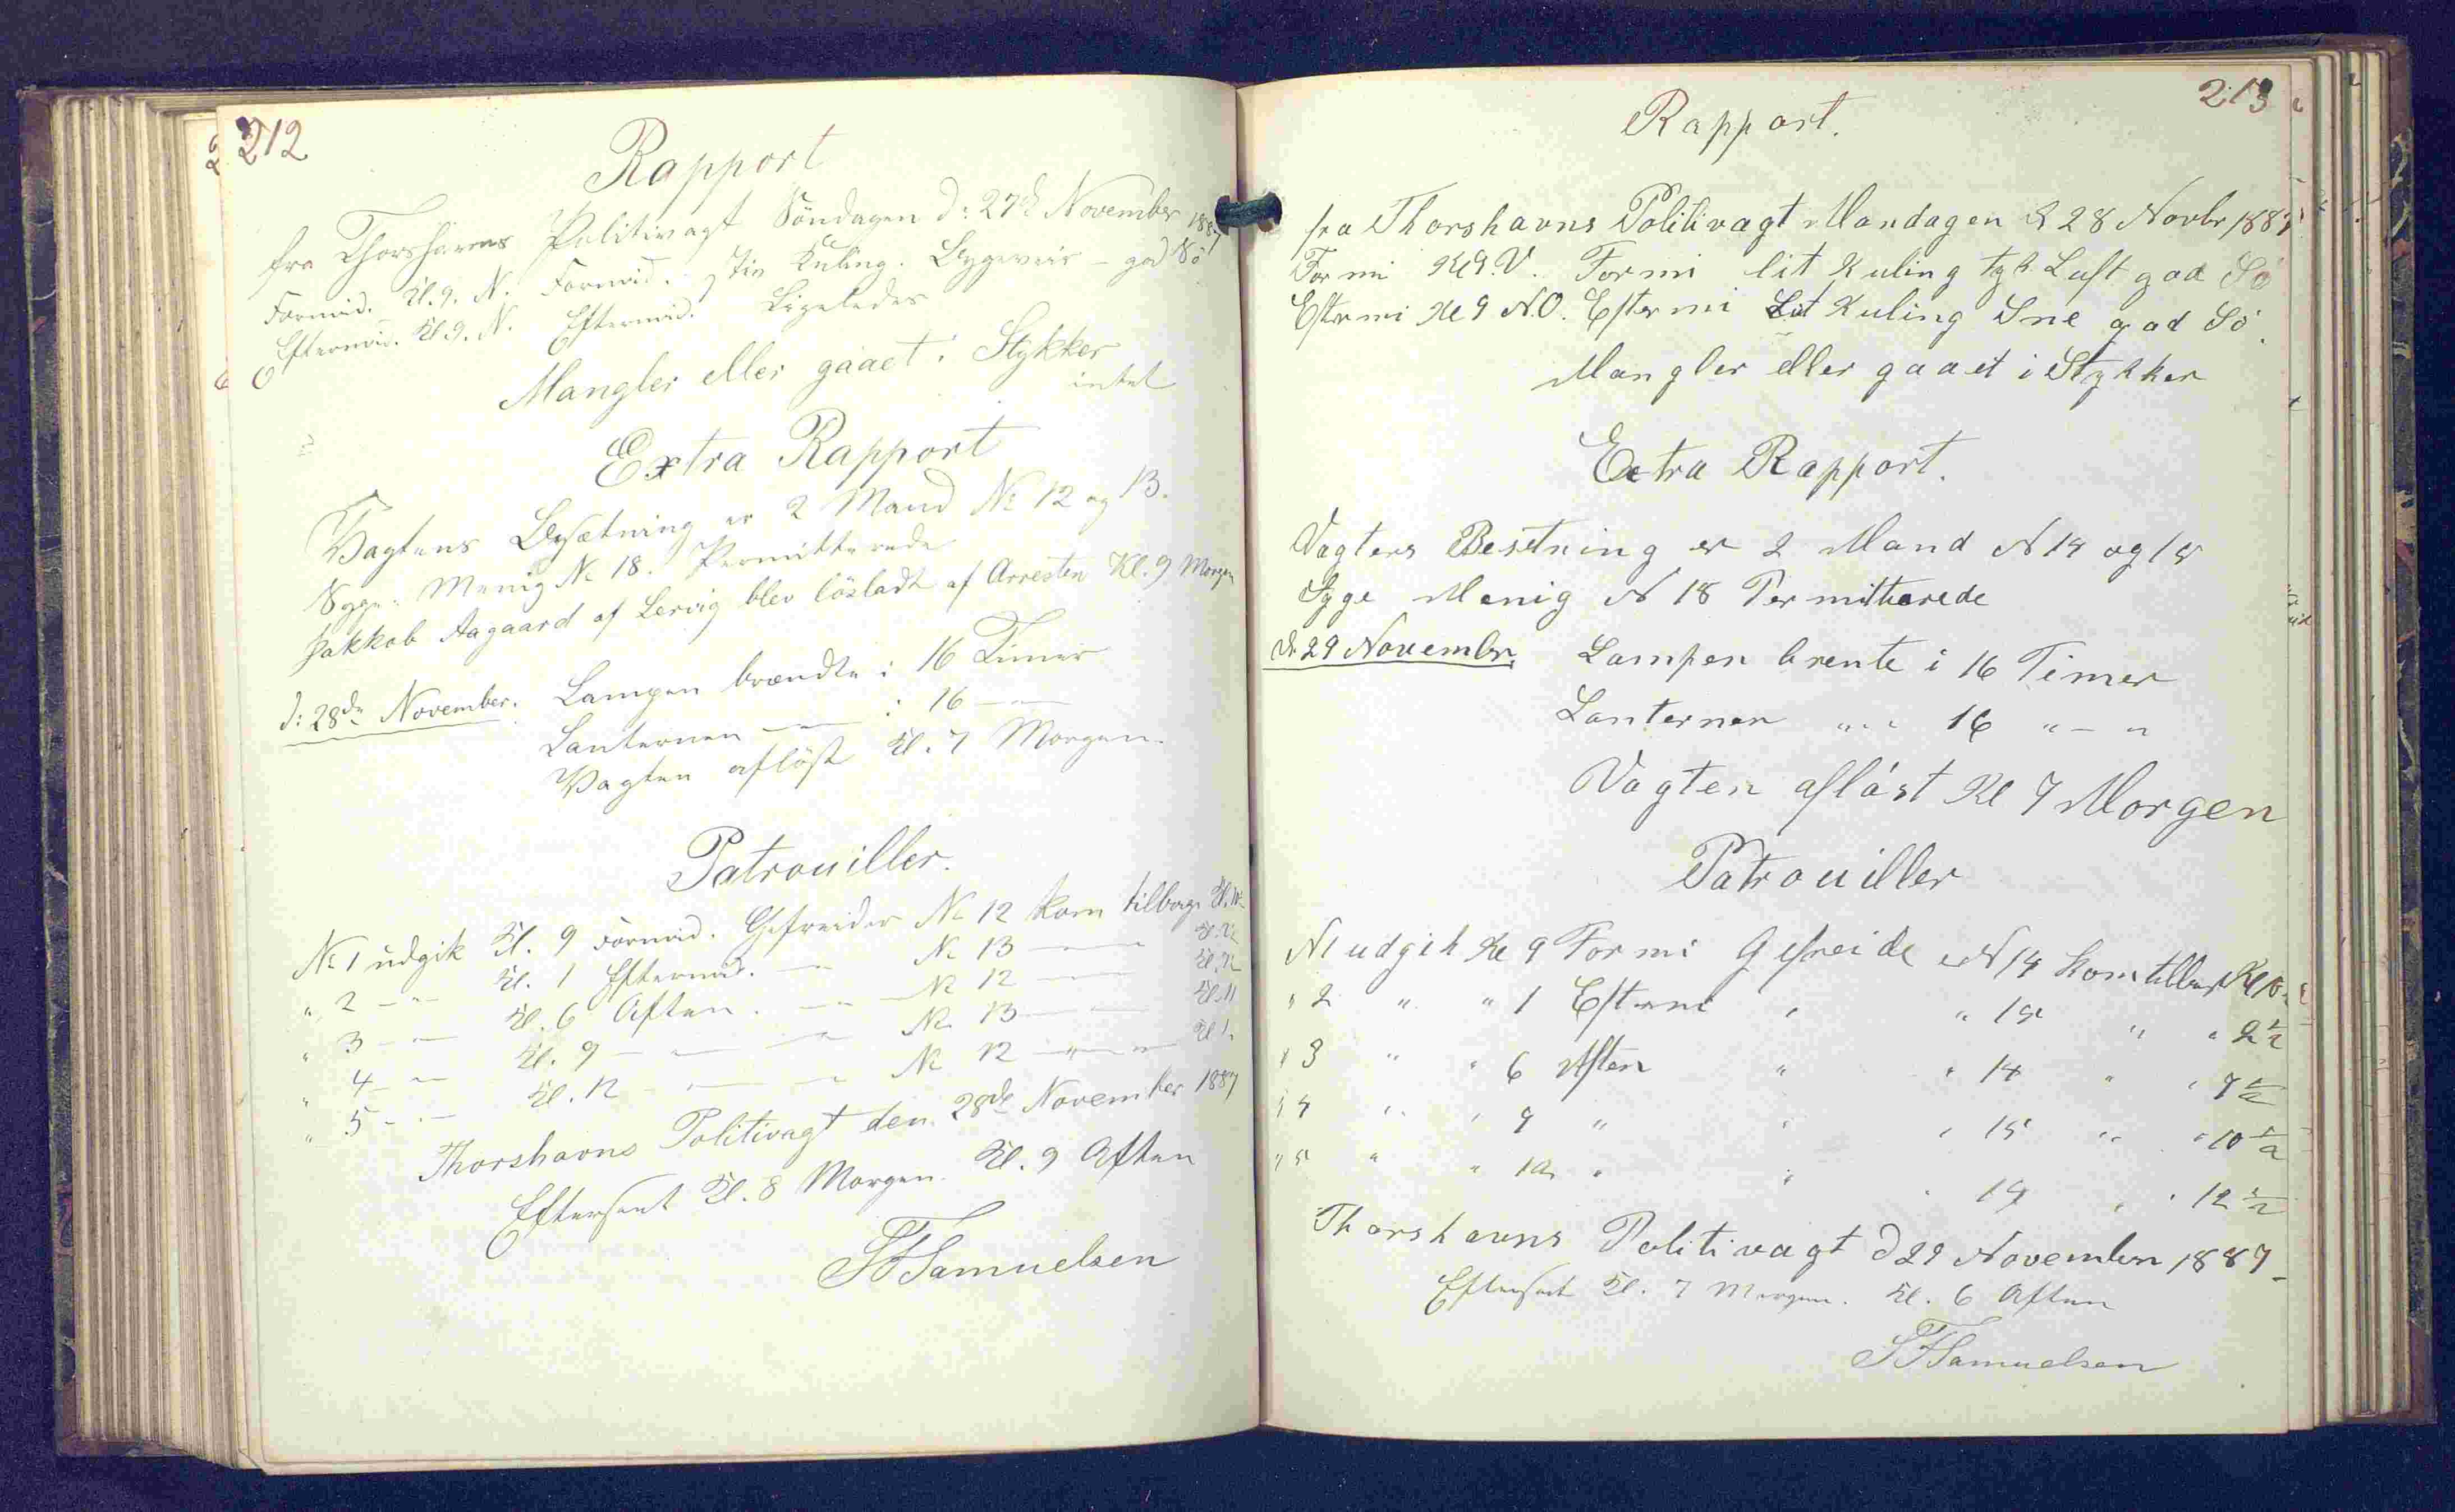 212
Rapport
fra Thorshavns Politivagt Söndagen d: 27d November 1887
Formid. Kl. 9. N. Formid. stiv Kuling. Bygeveir - god Sö
Eftermid. Kl. 9. N. Eftermid. Ligeledes
Mangler eller gaaet i Stykker
intet
Extra Rapport
Vagtens Besætning er 2 Mand No 12 og 13.
Syge: Menig No 18. Permitterede
Jakkob Aagaard af Lervig blev lösladt af Arresten Kl. 9 Morgen
d: 28de November. Lampen brændte i 16 Timer
Lanternen — i 16 —
Vagten aflöst Kl. 7 Morgen.
Patrouiller.
No 1 udgik Kl. 9 Formid. Gefreider No 12 kom tilbage Kl.
" 2 - - Kl. 1 Eftermid. — No 13 —
" 3 - - Kl. 6 Aften. — No 12 —
" 4 - - Kl. 9 — — No 13 — Kl. 11
" 5 - - Kl. 12 — — No 12 — Kl. 1
Thorshavns Politivagt den 28de November 1887
Efterseet Kl. 8 Morgen. Kl. 9 Aften
SFSamuelsen
213
Rapport.
fra Thorshavns Politivagt Mandagen d 28 Novbr 1887
Formi Kl 9. V. Formi lit Kuling tyk Luft god Sö
Eftermi Kl 9 N.O. Eftermi Lit Kuling Sne god Sö.
Mangler eller gaaet i Stykker
Extra Rapport.
Vagters Besetning er 2 Mand N 14 og 15
Syge Menig N 18 Permitterede
d. 29 November. Lampen brente i 16 Timer
Lanternen " " 16 " - "
Vagten aflöst Kl 7 Morgen
Patrouiller
N1 udgik Kl 9 Formi Gefreider N 14 kom tilbag Kl 10
" 2 " " 1 Eftermi " " 15 " " 2 1/2
" 3 " " 6 Aften " " 14 " " 7 1/2
" 4 " " 9 " " " 15 " " 10 1/2
" 5 " " 12 " " " 14 " " 12 1/2
Thorshavns Politivagt d 29 November 1887
Efterseet Kl. 7 Morgen. Kl. 6 Aften
SFSamuelsen